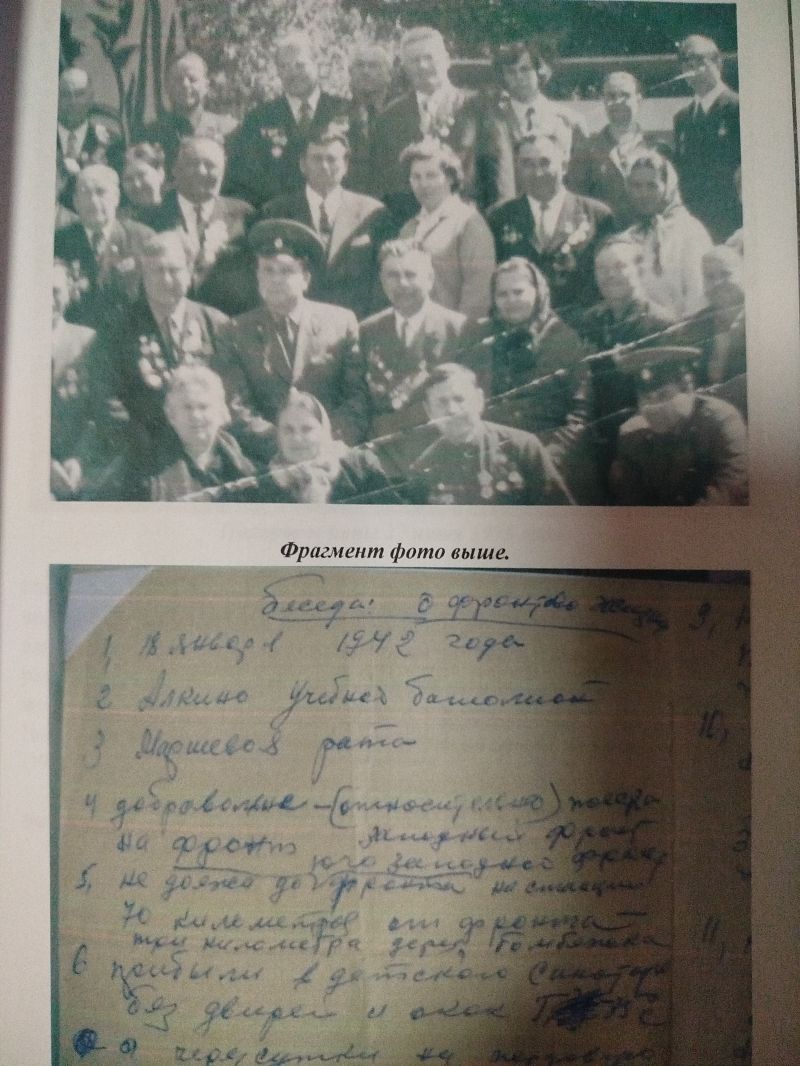 Фрагмент фото выше.
беседа: о фронтво
1, 18 января 1942 года
2 Алкино учебной батолион
3 Маршевоя рота
4 добраволне -(относительно)
на фронт западный фронт
юго западной
5, не доежа до фронта на станции
70 километров от фронта
три километра
6 прибыли в детского
без дверей и окон
через сутки на
9,
10,
11,